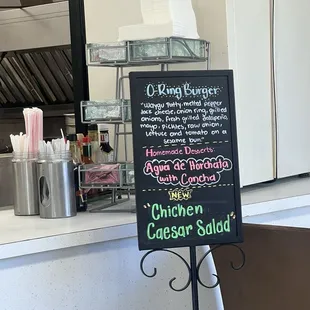 O-Ring Burger
"Wagyu patty, melted pepper
jack cheese, onion ring, grilled
onions, fresh grilled Jalapeño,
mayo, pickles, raw onion,
lettuce and tomato on a
sesame bun"
Homemade Desserts:
Agua de Horchata
with Concha
NEW
"Chicken
Caesar Salad"